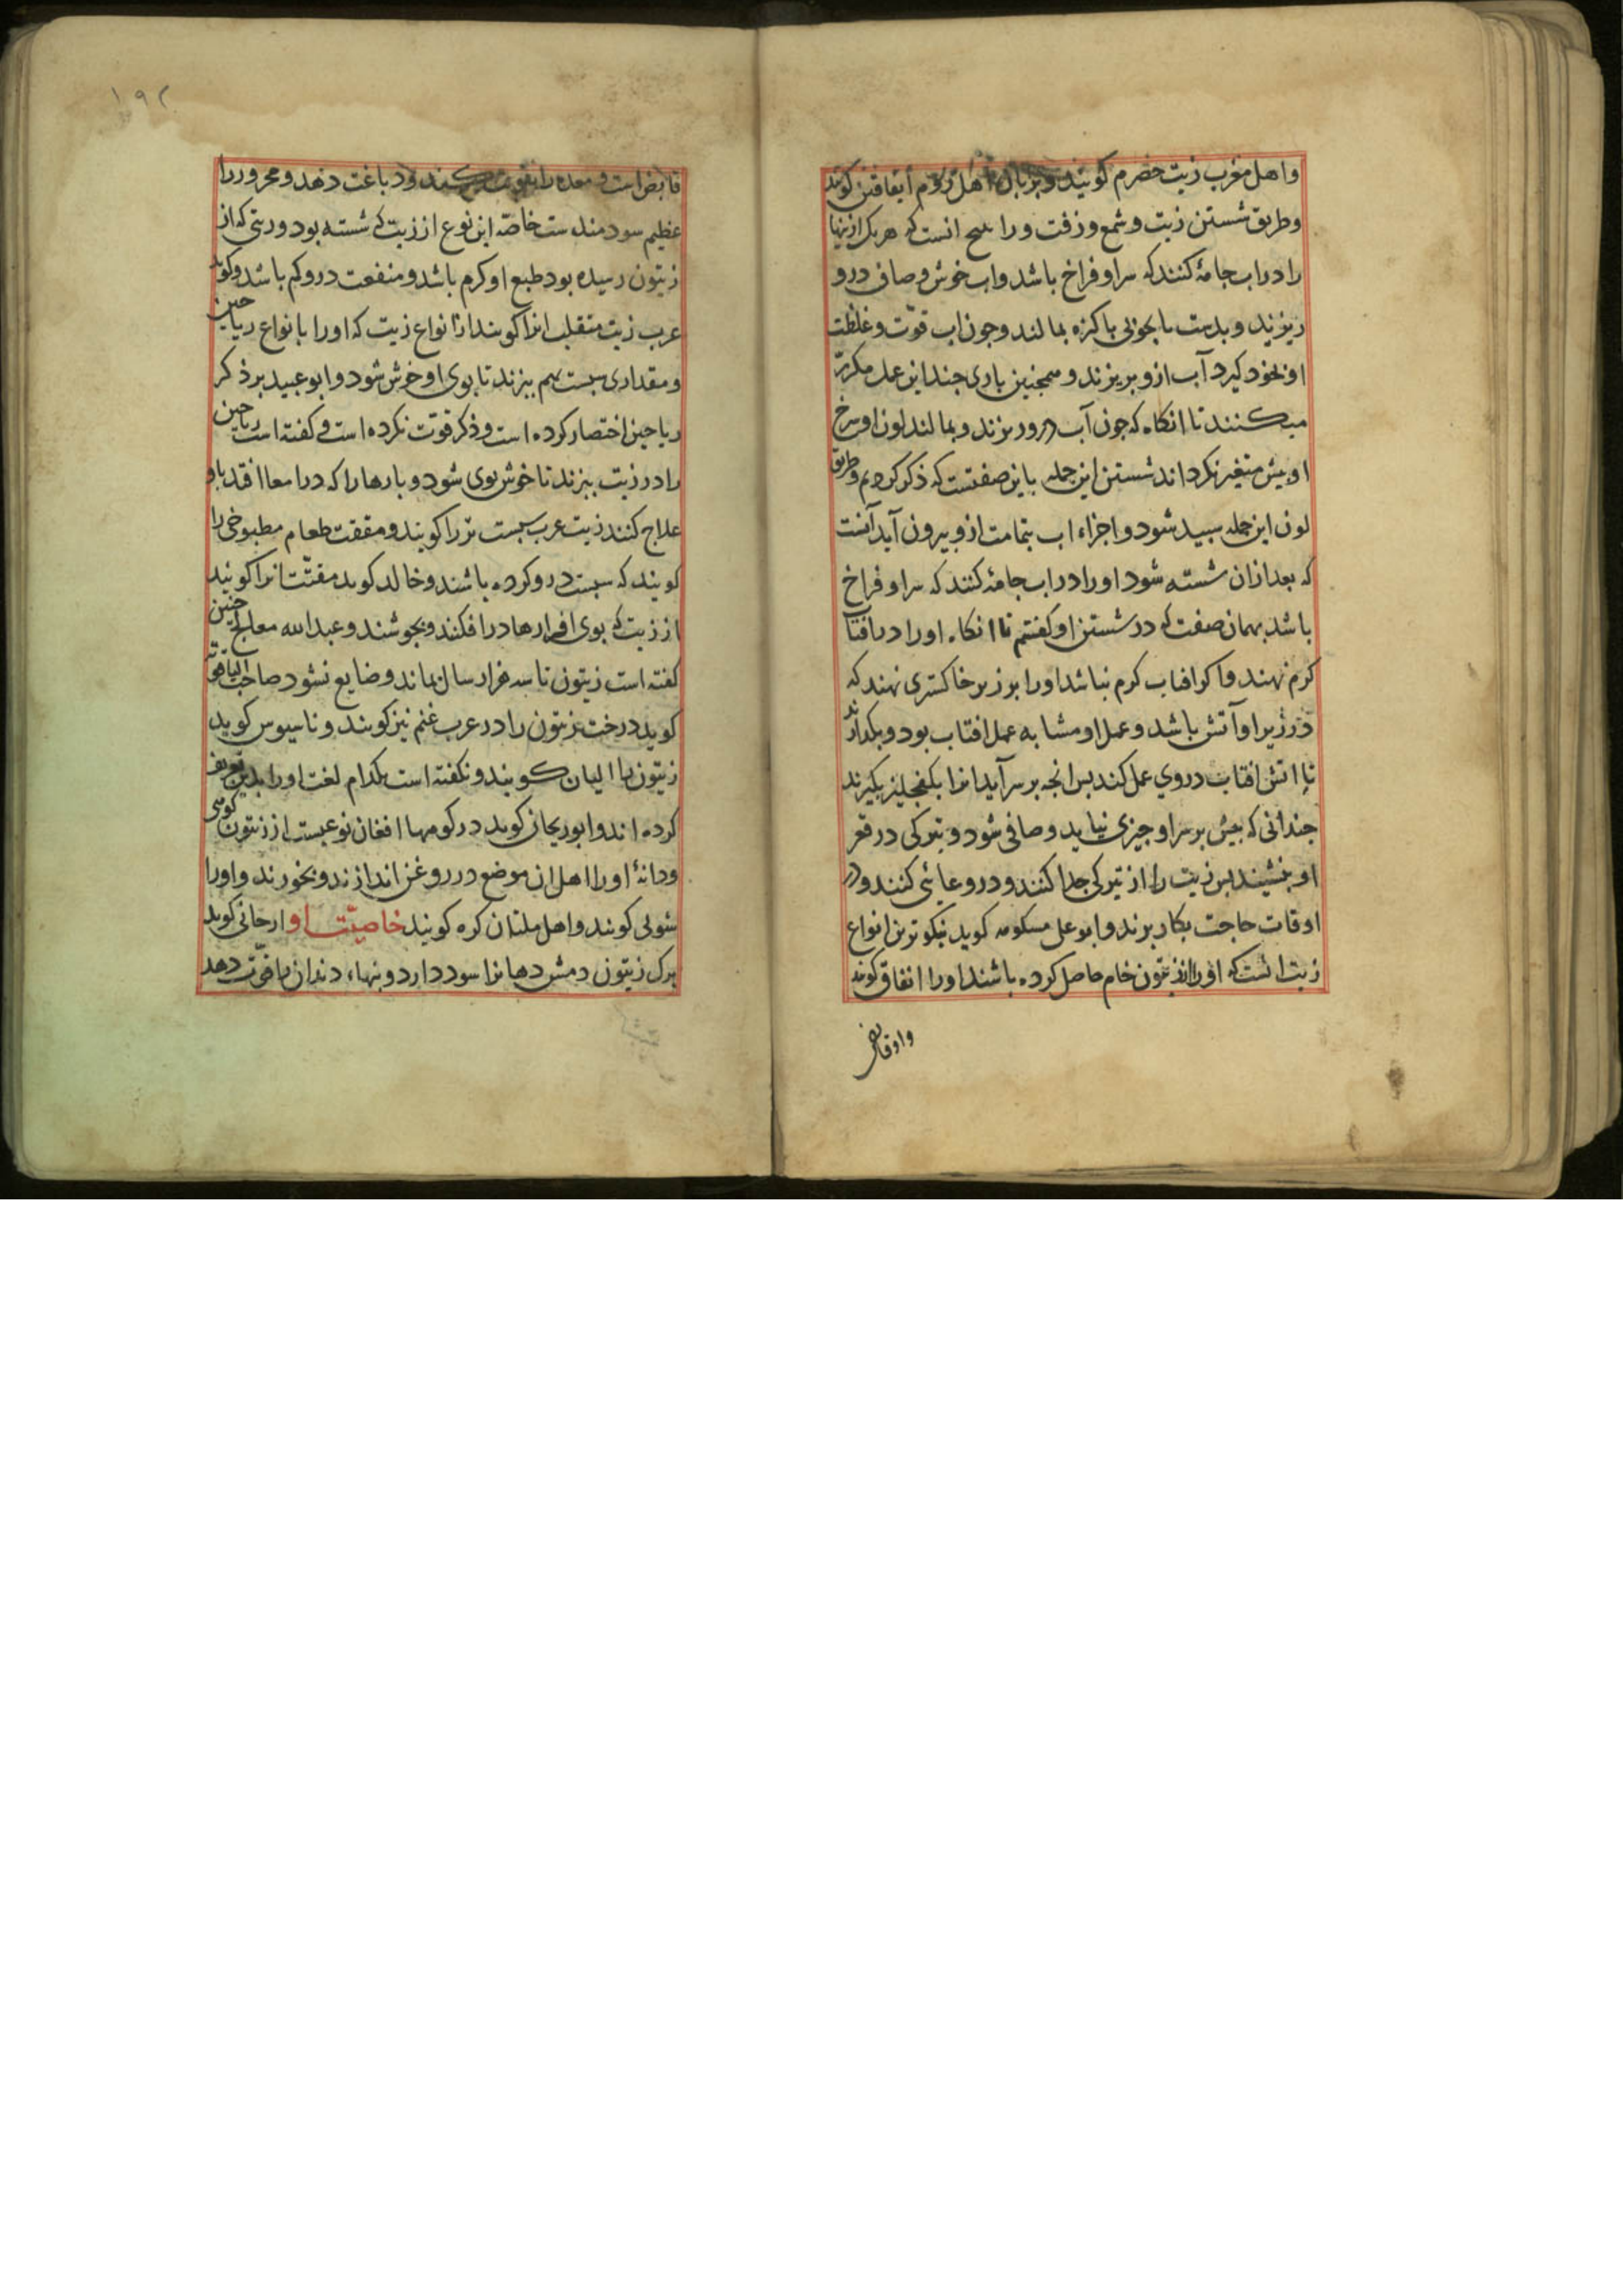 واهل مغرب زیت حضرم کویند و بزبان اهل روم ایفاقنن کویند
وطریق شستن زیت وشمع وزفت ورا انست که هریک ازینها
را دراب جامهٔ کنند که سراو فراخ باشد واب خوش وصافی درو
ریزند و بدست یا بچوبی پاکیزه بمالند وجون اب قوّت وغلظت
او بخود کیرد آب ازو بریزند و همجنین باری جند این عمل مکرّر
میکنند تا انکاه که جون آب درو ریزند وبمالند لون او سرخ
او بیش متغیر نکرداند شستن این جمله باین صفتست که ذکر کردیم وطریق
لون این جمله سبید شود و اجزاء اب بتمامت ازو بیرون آید آنست
که بعد ازان شسته شود اورا دراب جامهٔ کنند که سراو فراخ
باشد بهمان صفت که در شستن او کفتیم تا انکاه اورا درافتاب
کرم نهند واکر افتاب کرم نباشد اورا بر زبر خاکستری نهند که
درزیر او آتش باشد و عمل او مشابه عمل افتاب بود و بکدارند
تا اتش افتاب دروی عمل کند بس انجه برسر آید انرا بکفجلیز بکیرند
جندانی که بیش برسراو جیزی نیاید وصافی شود و تیرکی در قعر
او بنشیند بس زیت را از تیرکی جدا کنند و در وعائی کنند ودر
اوقات حاجت بکار برند وابو علی مسکویه کوید نیکوترین انواع
زیت انست که اورا از زیتون خام حاصل کرده باشند اورا انفاق کویند
واو قابض
١٩٢
قابض است و معده را تقویت کند ودباغت دهد ومحرور را
عظیم سودمندست خاصّه این نوع از زیت که شسته بود وزیتی که از
زیتون رسیده بود طبع او کرم باشد و منفعت درو کم باشد وکویند
عرب زیت متقلب انرا کویند ازانواع زیت که اورا بانواع ریاحین
ومقداری سست بهم ببزند تا بوی او خوش شود وابو عبید بر ذکر
ریاحین اختصار کرده است وذکر قوت نکرده است و کفته است ریاحین
را در زیت ببزند تا خوش بوی شود و بارها را که درامعا افتد باو
علاج کنند زیت عرب سست تر را کویند و مقتت طعام مطبوخی را
کویند که سست درو کرده باشند وخالد کوید مقتّت انرا کویند
از زیت که بوی افزارها درافکنند وبجوشند وعبدالله معالج جنین
کفته است زیتون تا سه هزار سال بماند وضایع نشود صاحب الیاقوتة
کوید درخت زیتون را در عرب غنم نیز کویند و ناسیوس کوید
زیتون را الیان کویند و نکفته است بکدام لغت اورا بدین تعریف
کرده اند وابو ریحان کوید در کوهها افغان نوعیست از زیتون کوهی
ودانهٔ اورا اهل ان موضع در روغن اندازند و بخورند واورا
شولی کویند واهل ملتان کره کویند خاصیّت او ارجانی کوید
برک زیتون دمش دهانرا سود دارد و بنهاء دندان را قوّت دهد